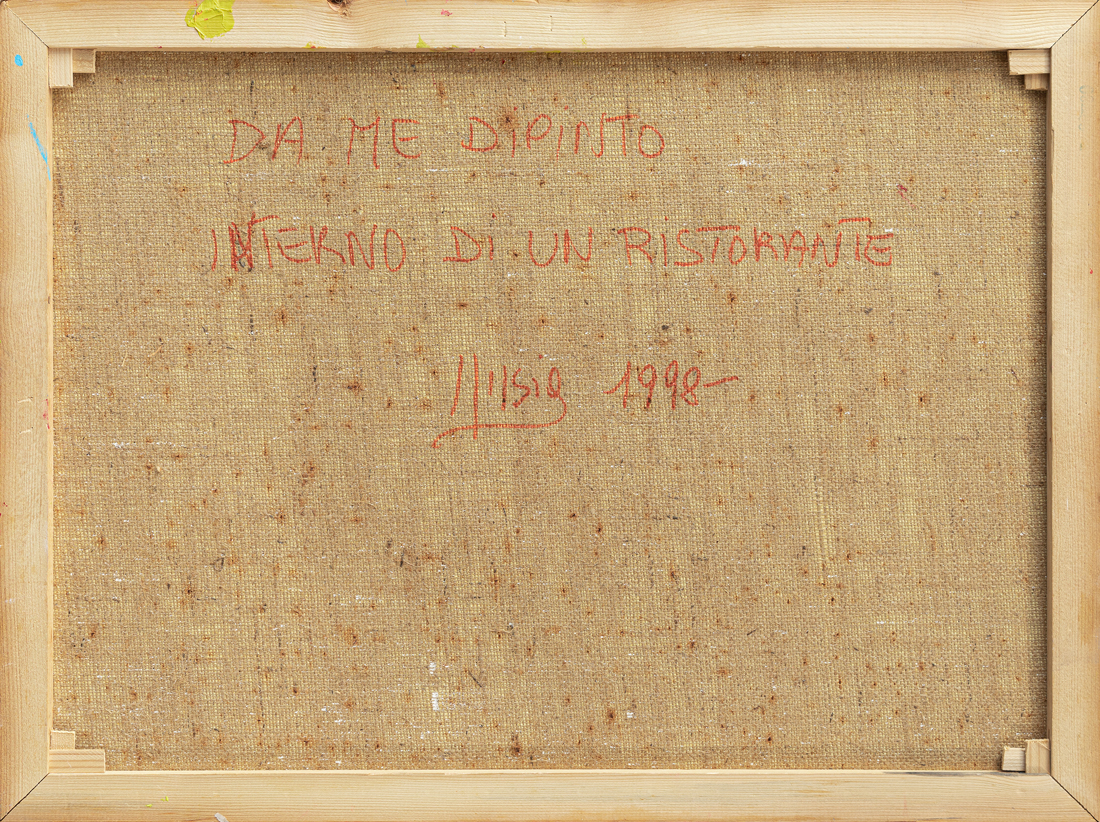 DA ME DIPINTO
INTERNO DI UN RISTORANTE
1998